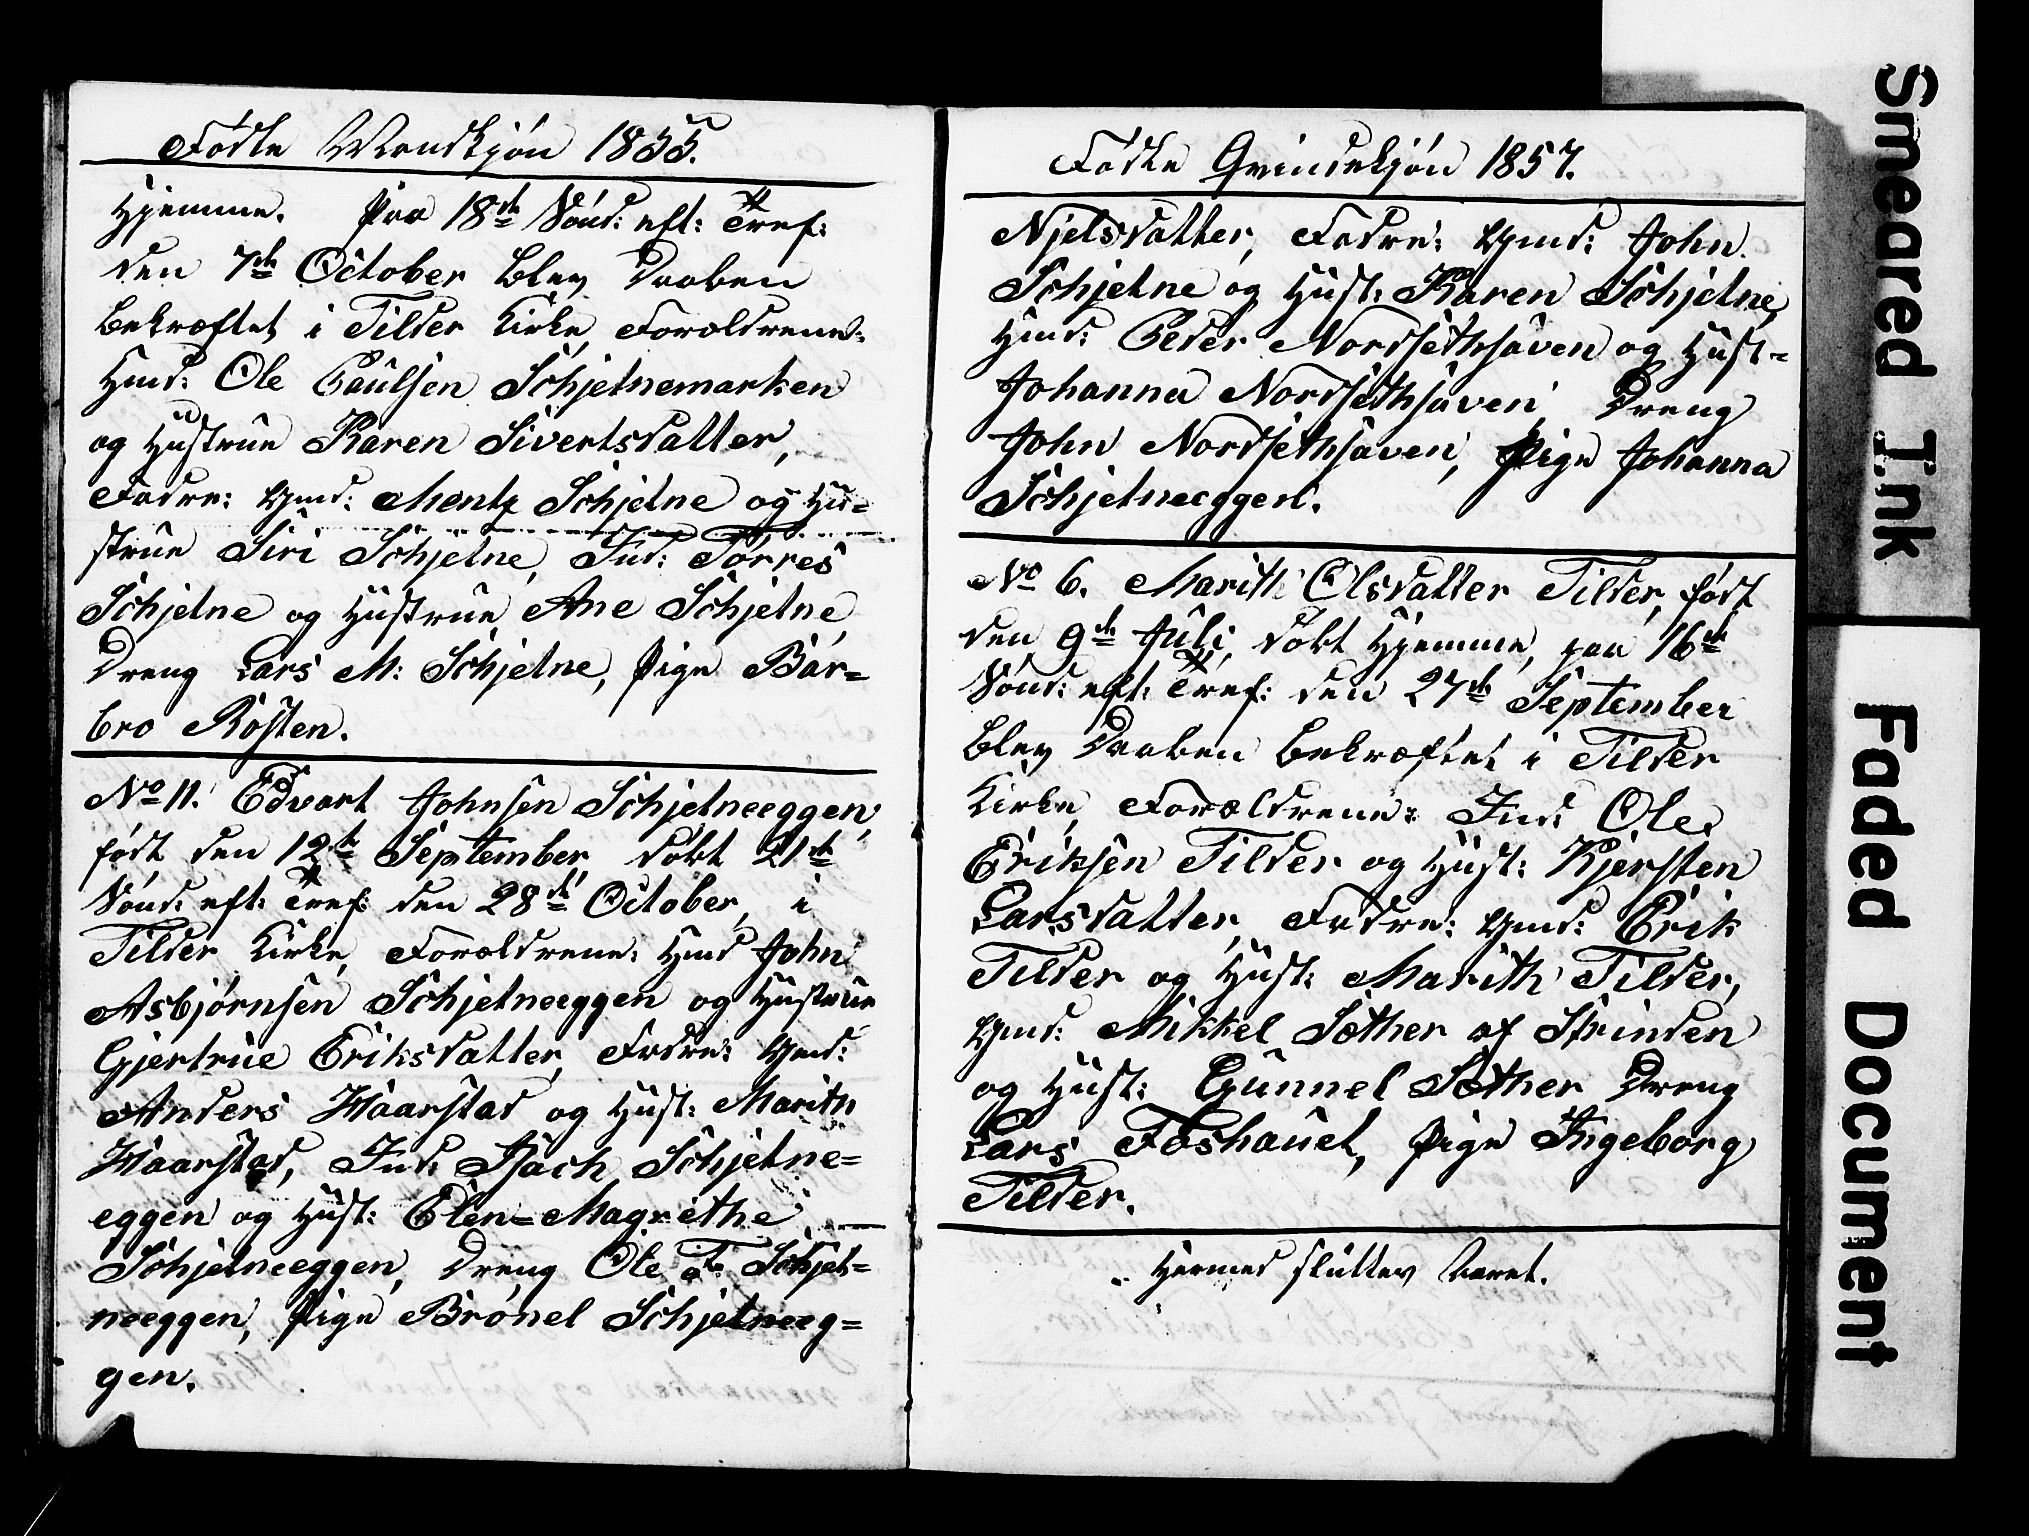 Födte Mandkjön 1855.
Hjemme. Paa 18de Sönd: eft: Tref:
den 7de October blev Daaben
bekræftet i Tilder Kirke, Forældrene:
Hmd: Ole Paulsen Schjelnemarken
og Hustrue Karen Sivertsdatter,
Fadre: Gmd: Mentz Schjelne og Hu-
strue Siri Schjelne, Ind: Torres
Schjelne og Hustrue Ane Schjelne,
Dreng Lars M: Schjelne, Pige Bar-
bro Rösten.
No 11. Edvart Johnsen Schjelneeggen,
födt den 12te September, döbt 21de
Sönd: eft: Tref: den 28de October, i
Tilder Kirke, Forældrene: Hmd John
Asbjörnsen Schjelneeggen og Hustrue
Gjertrue Eriksdatter, Fadre: Gmd:
Anders Haarstad og Hust: Marith
Haarstad, Ind: Isach Schjelne-
eggen og Hust: Elen-Magrethe
Schjelneeggen, Dreng Ole Schjel-
neeggen, Pige Brönel Schjelneeg-
gen.
Födte Qvindekjön 1857.
Njelsdatter, Fadre: Gmd: John
Schjelne og Hust: Karen Schjelne,
Hmd: Peder Nordsethsaven og Hust-
Johanna Nordsethsaven, Dreng
John Nordsethsaven, Pige Johanna
Schjelneeggen.
No 6. Marith Olsdatter Tilder, födt
den 9de Juli, döbt Hjemme, paa 16de
Sönd: eft: Tref: den 27de September
blev Daaben bekræftet i Tilder
Kirke, Forældrene: Ind: Ole
Eriksen Tilder og Hust: Kjersten
Larsdatter, Fadre: Gmd: Erik
Tilder og Hust: Marith Tilder,
Gmd: Mikkel Sæther af Strinden
og Hust: Gunnel Sæther Dreng
Lars Foshauel, Pige Ingeborg
Tilder.
Hermed sluttev Aaret.
Smeared Ink
Faded Document